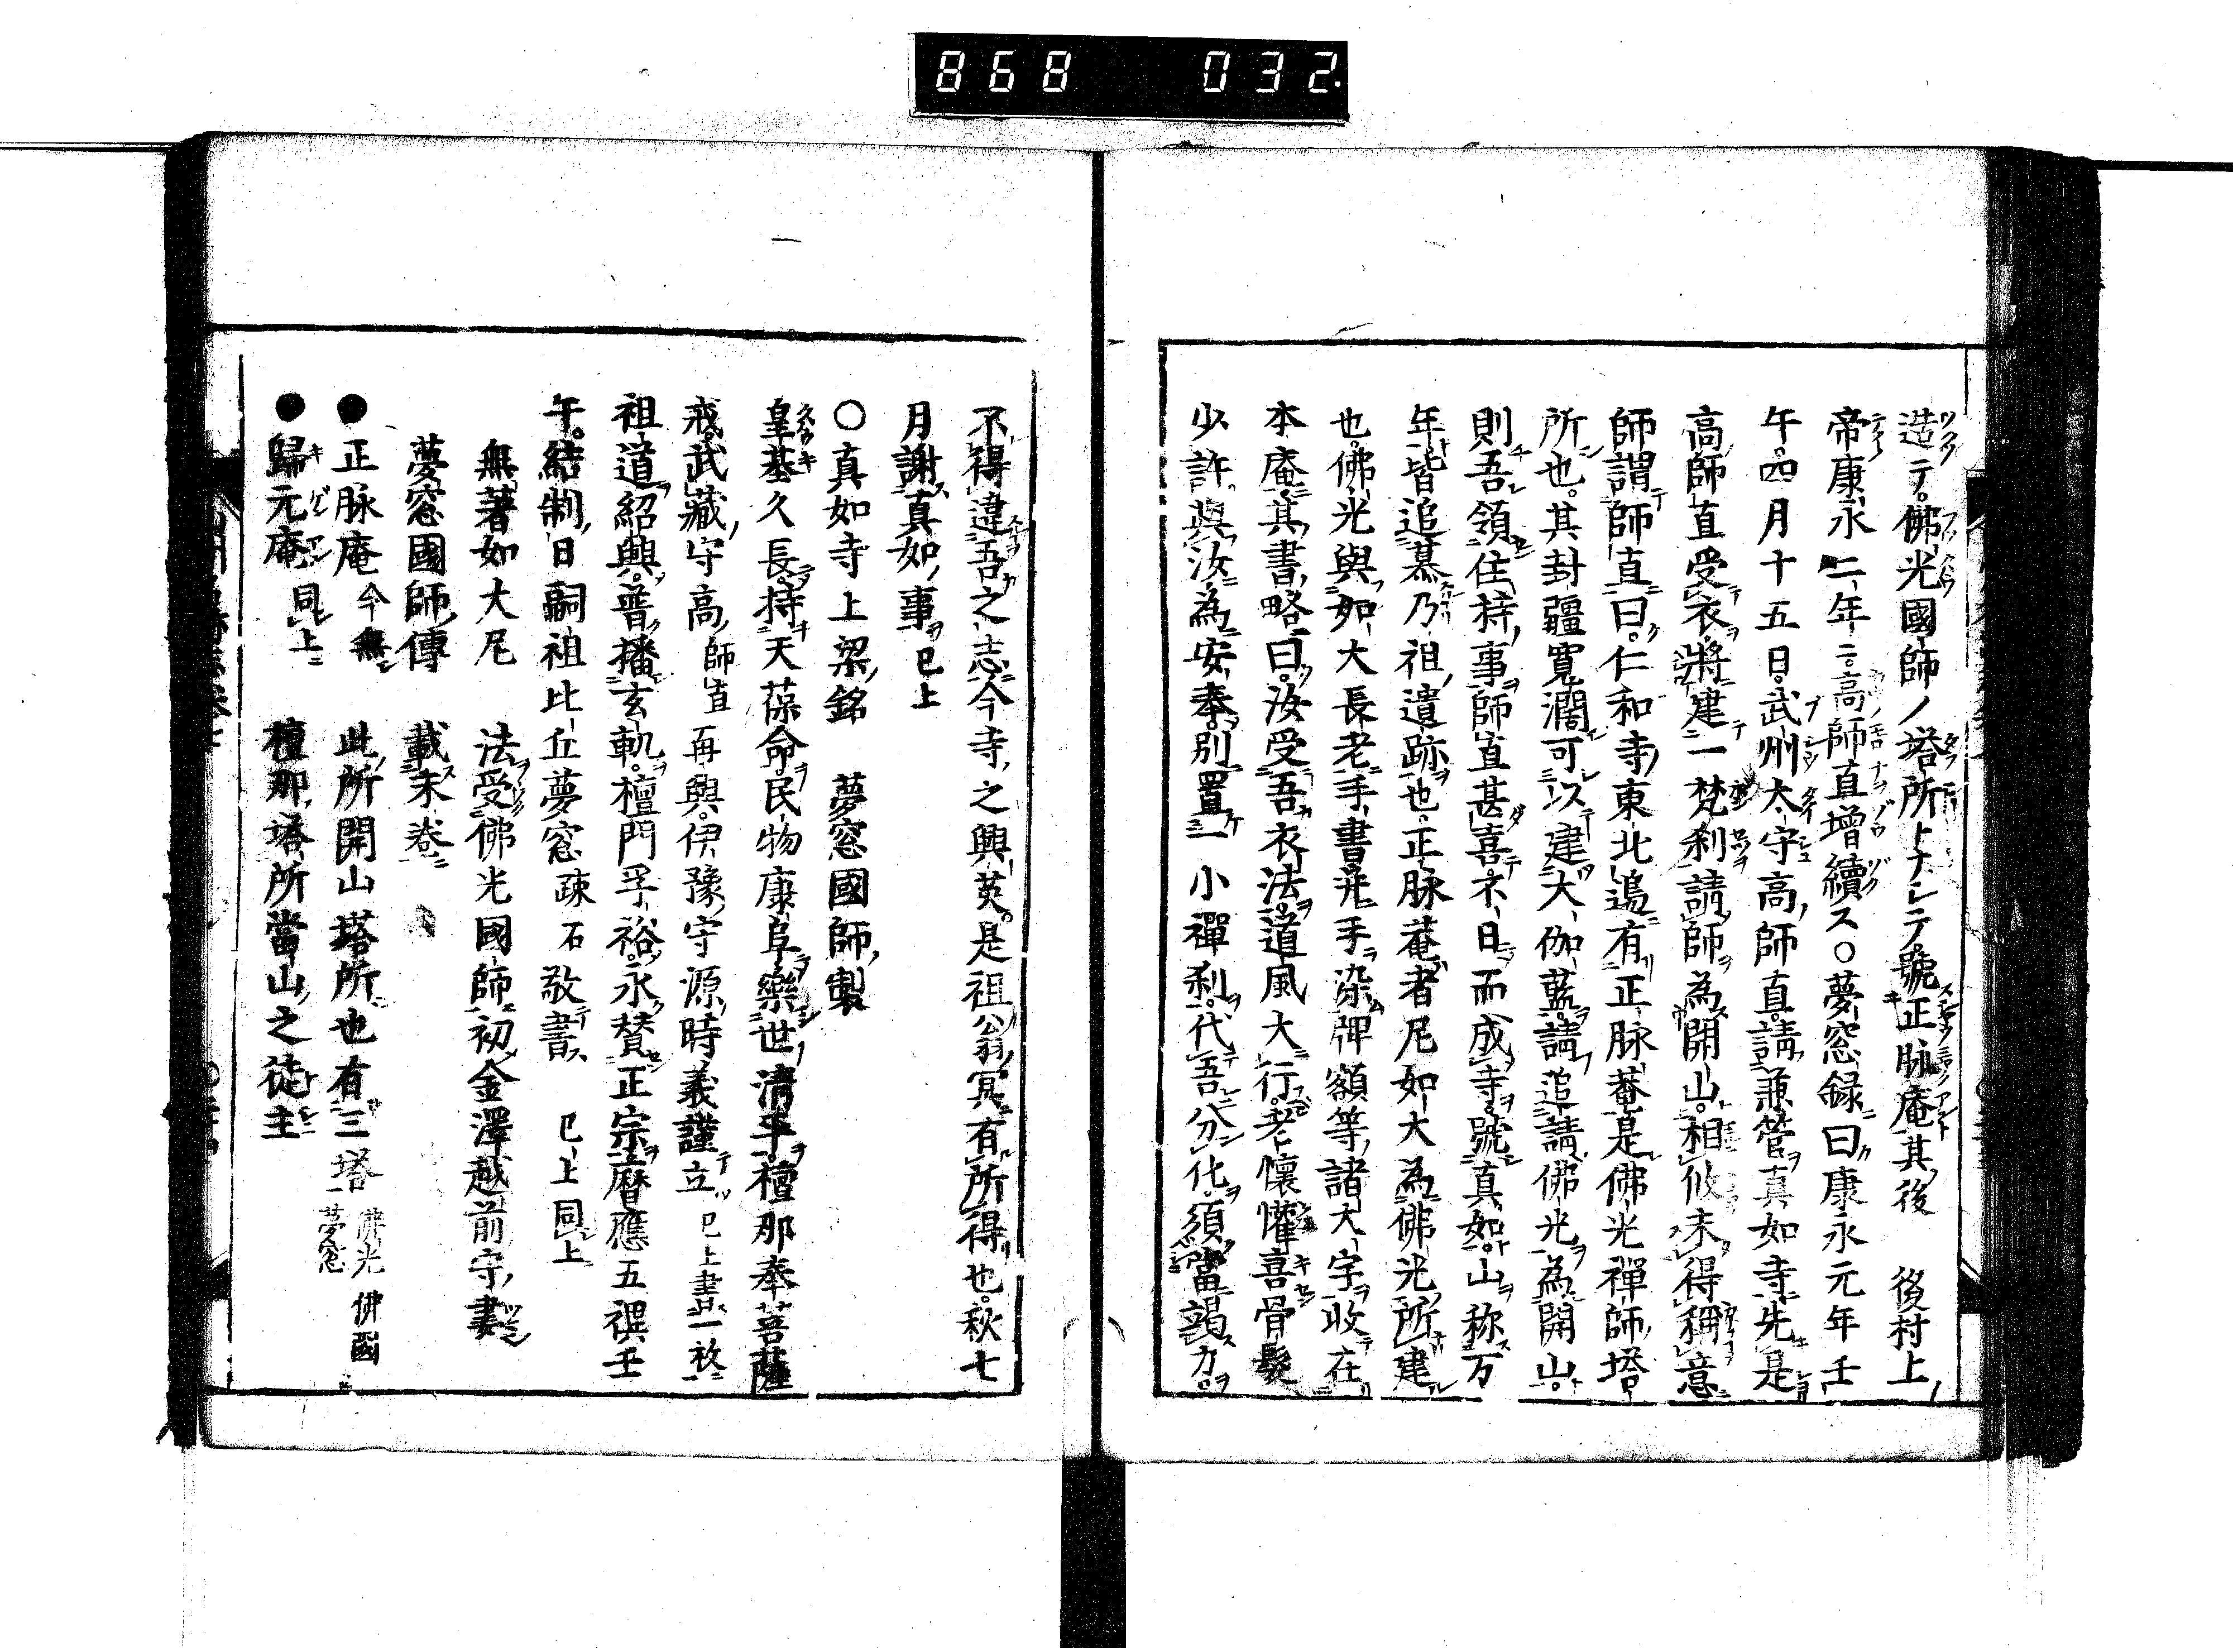 868 032
造テ佛光國師ノ塔所トナシテ號正脉庵其後 後村上
帝康永二年ニ高師直增續ス○夢窓録曰康永元年壬
午四月十五日武州太守高師直請兼管真如寺先是
高師直受衣將建一梵刹請師為開山相攸未得稱意
師謂師直曰仁和寺東北塢有正脉菴是佛光禪師塔
所也其封疆寬濶可以建大伽藍請追請佛光為開山
則吾領住持事師直甚喜不日而成寺號真如山称万
年皆追慕乃祖遺跡也正脉菴者尼如大為佛光所建
也佛光與如大長老手書并手染牌額等諸大字收在
本庵其書略曰汝受吾衣法道風大行老懷懽喜骨髮
少許與汝為安奉別置一小禪刹代吾分化須當竭力
不得違吾之志今寺之興英是祖翁冥有所得也秋七
月謝真如事已上
○真如寺上梁銘 夢窓國師製
皇基久長持天葆命民物康阜樂世清平檀那奉菩薩
戒武藏守高師直再興伊豫守源時義謹立已上書一枚
祖道紹興普播玄軌檀門孚裕永賛正宗曆應五禩壬
午結制日嗣祖比丘夢窓疎石敬書 已上同上
無著如大尼 法受佛光國師初金澤越前守妻
夢窓國師傳 載末巻
●正脉庵今無 此所開山塔所也有三塔佛光 佛國 夢窓
●歸元庵同上 檀那塔所當山之徒主